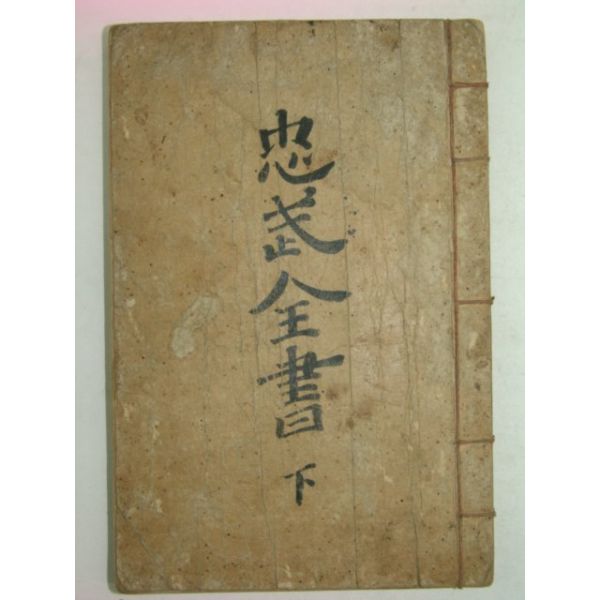 忠武全書
下